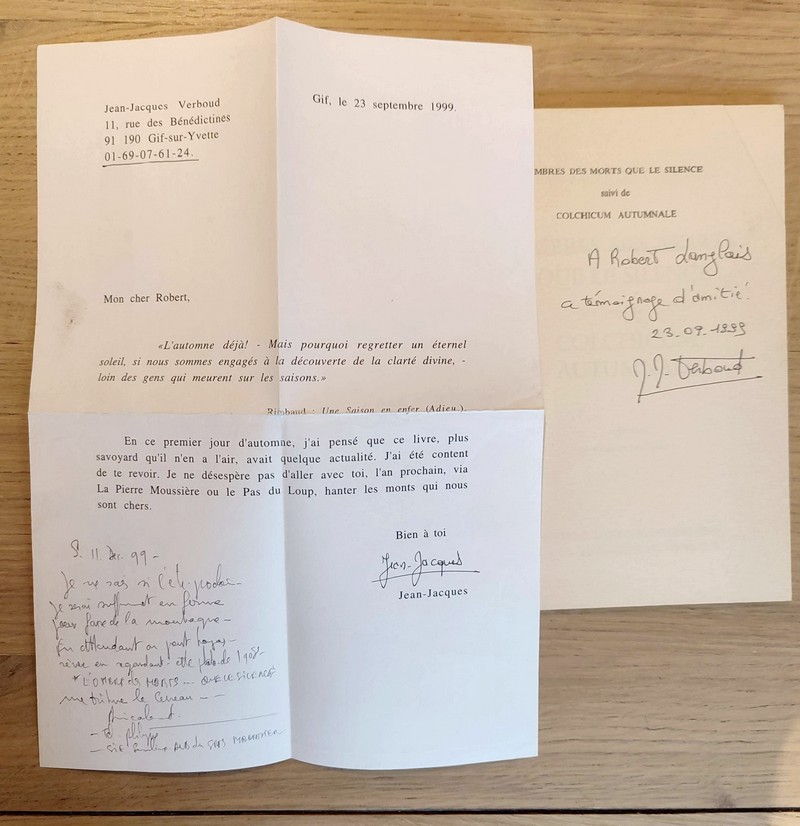 Jean-Jacques Verboud
11, rue des Bénédictines
91 190 Gif-sur-Yvette
01-69-07-61-24.
Gif, le 23 septembre 1999.
Mon cher Robert,
«L'automne déjà! - Mais pourquoi regretter un éternel
soleil, si nous sommes engagés à la découverte de la clarté divine, -
loin des gens qui meurent sur les saisons.»
Rimbaud : Une Saison en enfer (Adieu.).
En ce premier jour d'automne, j'ai pensé que ce livre, plus
savoyard qu'il n'en a l'air, avait quelque actualité. J'ai été content
de te revoir. Je ne désespère pas d'aller avec toi, l'an prochain, via
La Pierre Moussière ou le Pas du Loup, hanter les monts qui nous
sont chers.
Bien à toi
Jean-Jacques
Jean-Jacques
11. Dec. 99 -
Je ne sais si l'été prochain
je serai suffisamment en forme
pour faire de la montagne -
En attendant on peut
rêver en regardant
"L'OMBRE des MORTS ... QUE LE SILENCE
me le cerveau - -
Amicalement.
MBRES DES MORTS QUE LE SILENCE
suivi de
COLCHICUM AUTUMNALE
A Robert Langlais
a témoignage d'amitié.
23-09-1999
J.J. Verboud